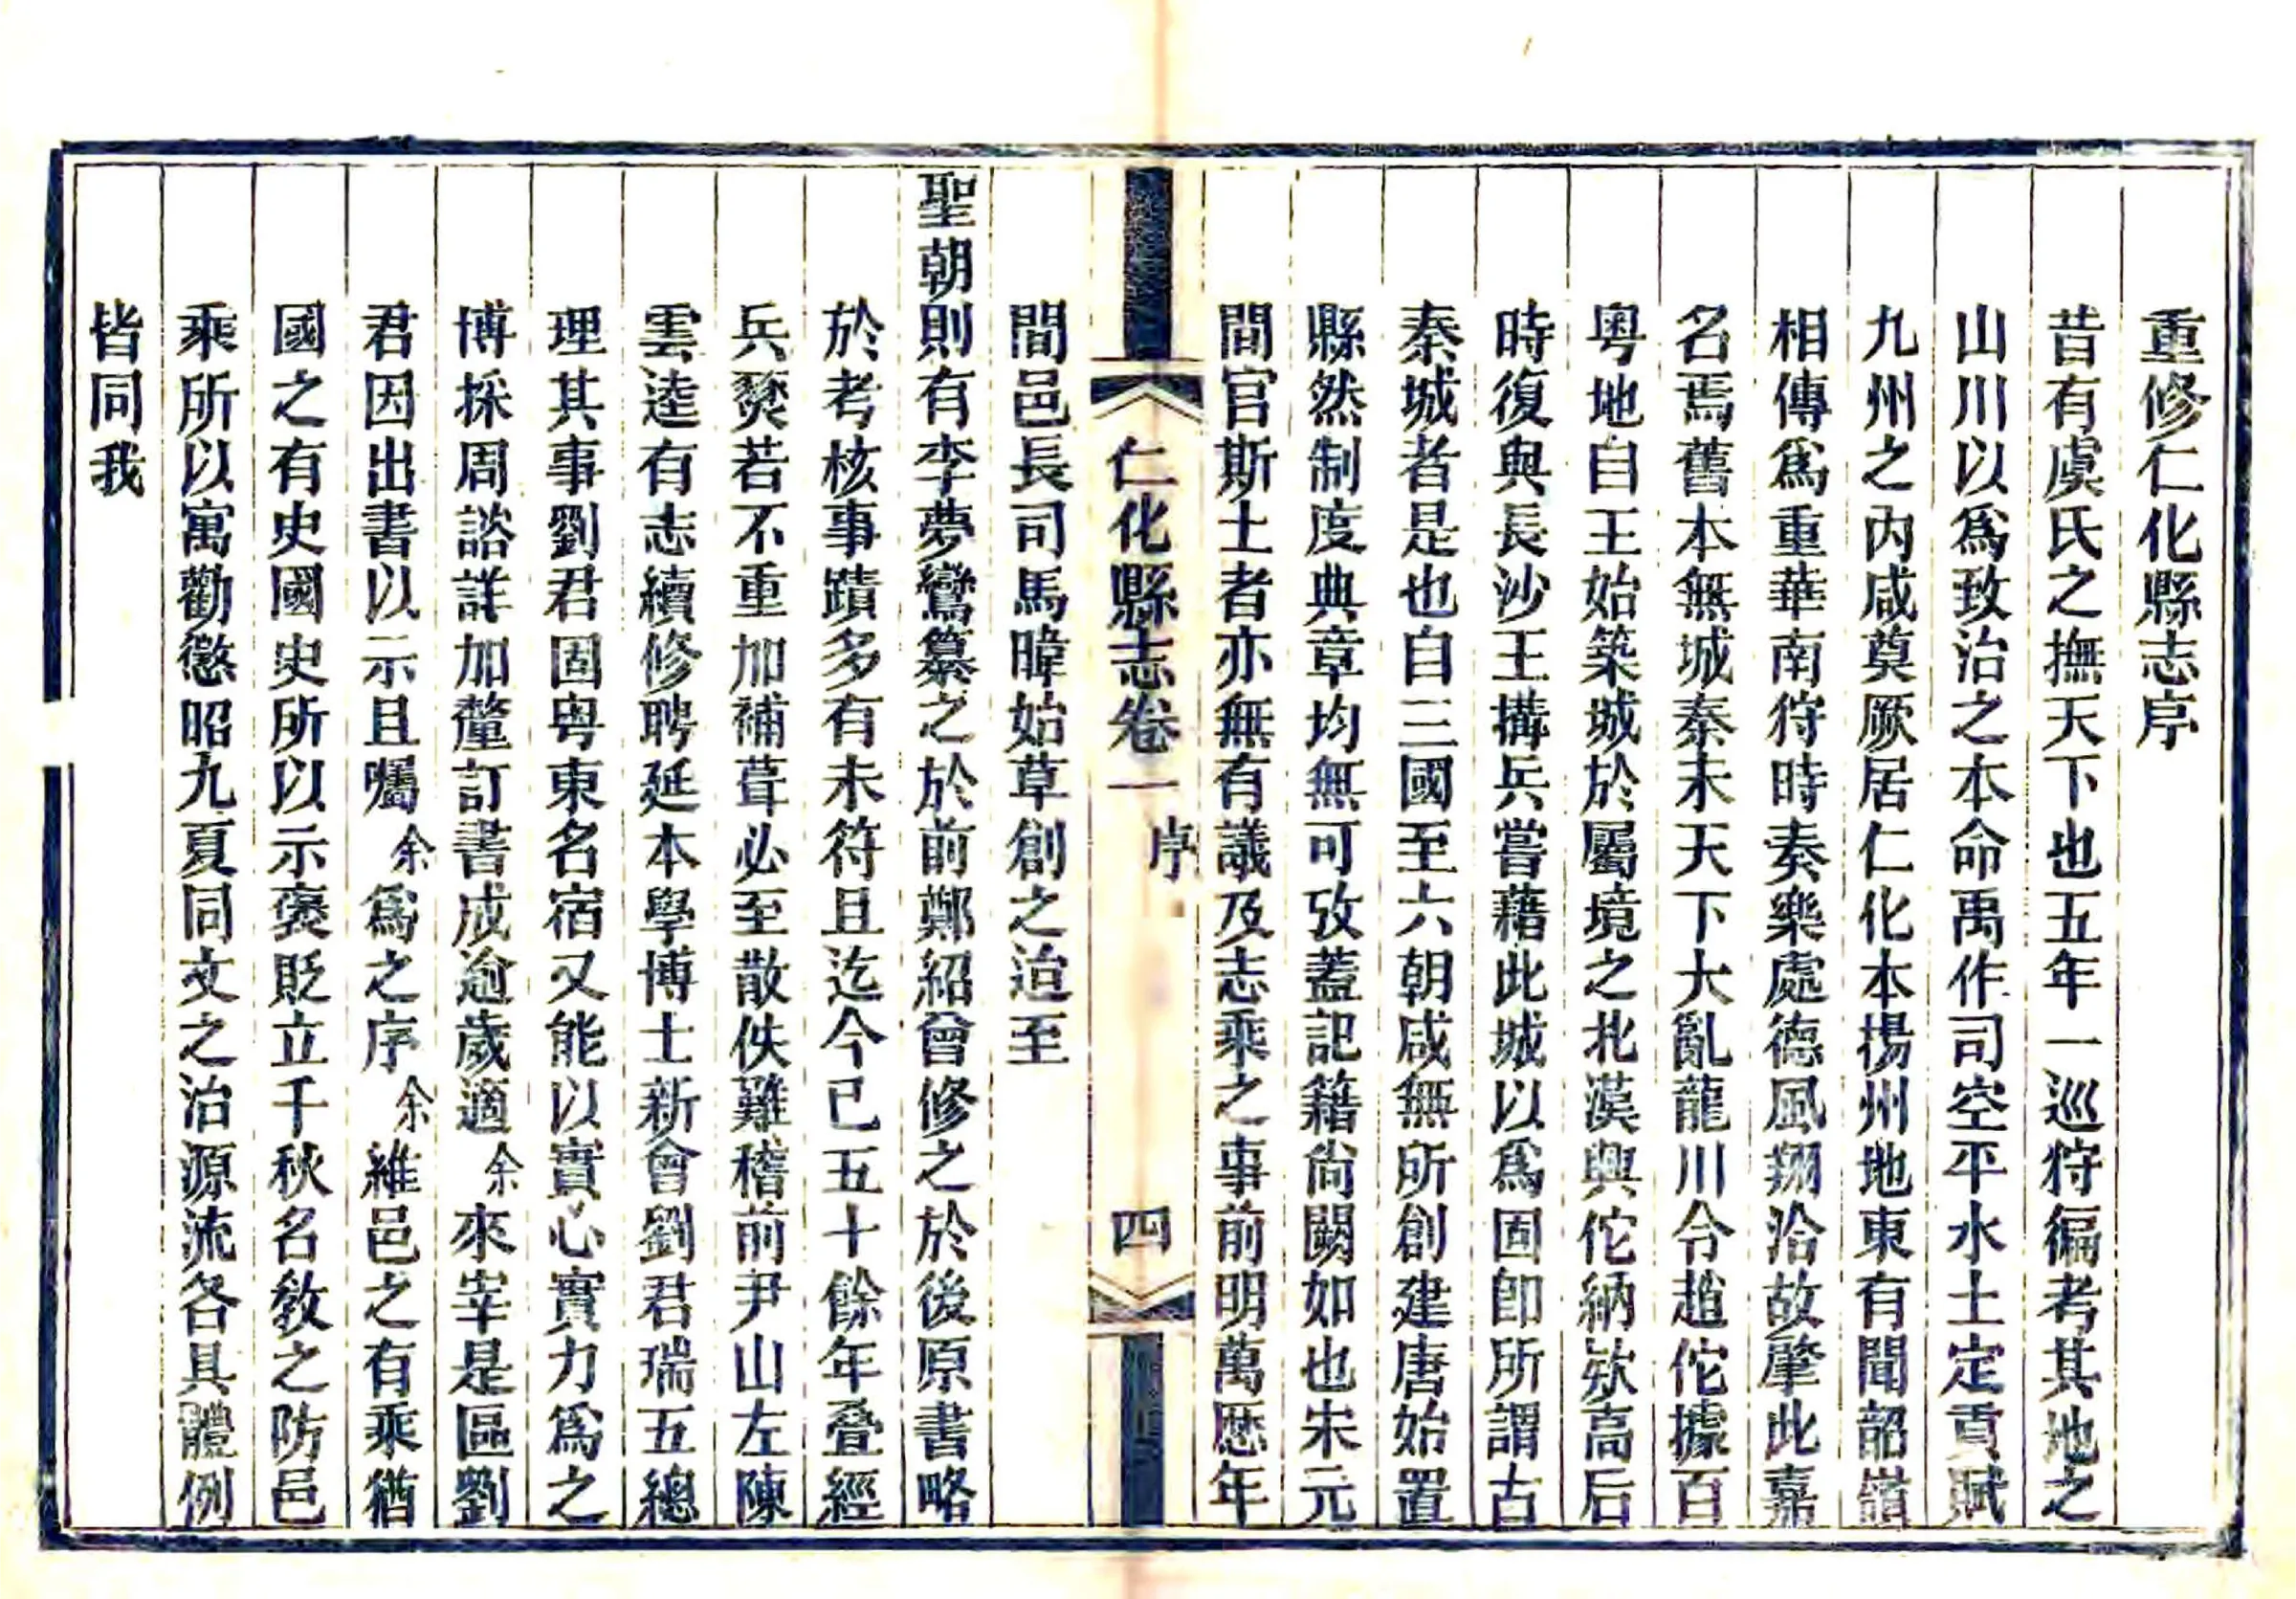 重修仁化縣志序
昔有虞氏之撫天下也五年一巡狩徧考其地之
山川以爲致治之本命禹作司空平水土定貢賦
九州之内咸奠厥居仁化本揚州地東有聞韶嶺
相傳爲重華南狩時奏樂處德風翔洽故肇此嘉
名焉舊本無城秦末天下大亂龍川令趙佗據百
粤地自王始築城於屬境之北漢興佗納欵高后
時復與長沙王搆兵嘗藉此城以爲固卽所謂古
秦城者是也自三國至六朝咸無所創建唐始置
縣然制度典章均無可攷蓋記籍尙闕如也宋元
間官斯土者亦無有議及志乘之事前明萬厯年
仁化縣志卷一 序 四
間邑長司馬暐始草創之迨至
聖朝則有李夢鸞纂之於前鄭紹曾修之於後原書略
於考核事蹟多有未符且迄今已五十餘年叠經
兵燹若不重加補葺必至散佚難稽前尹山左陳
雲逵有志續修聘延本學博士新會劉君瑞五總
理其事劉君固粤東名宿又能以實心實力爲之
博採周諮詳加釐訂書成逾歲適余來宰是區劉
君因出書以示且囑余爲之序余維邑之有乘猶
國之有史國史所以示褒貶立千秋名敎之防邑
乘所以寓勸懲昭九夏同文之治源流各具體例
皆同我